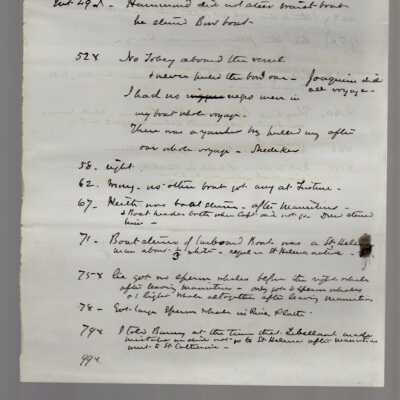 Int 49x. Hammond did not steer waist boat
he steered Bow boat
52x No Tobey aboard the vessel
+ never pulled the bow oar - Joaquin did
all voyage -
I had no negro men in
my boat whole voyage -
There was a                pulled my after
oar whole voyage -
58 - right
62. wrong - no other boat got any at
67. Keith was boat steerer - after Mauritius -
+ Boat header both when Capt did not go.
him -
71 - Boat steerer of Larboard Boat was a St Helena
man about 1/3 white - negro + St Helena native -
75x lie got no sperm whales before the right whale
after leaving Mauritius - only got 2 sperm whales
+ 1 right whale altogether after leaving Mauritius
78 - Got large sperm whale in River Platte -
79x I told             at the time that Libellant made
mistake in         not go to St Helena after Mauritius
went to St Catherine -
99x